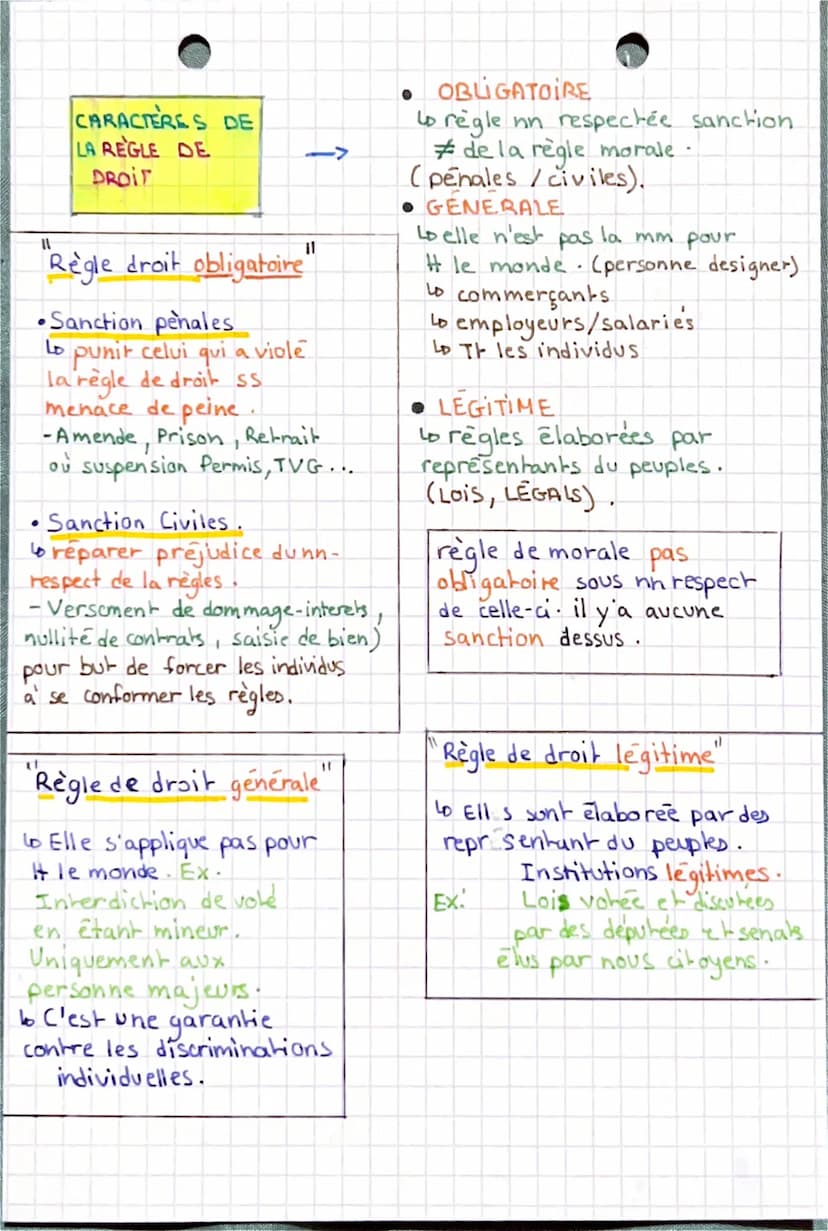 CARACTÈRES DE
LA RÈGLE DE
DROIT
→
• OBLIGATOIRE
↳ règle nn respectée sanction
≠ de la règle morale.
(pénales / civiles).
• GÉNÉRALE
↳ elle n'est pas la mm pour
tt le monde. (personne designer)
↳ commerçants
↳ employeurs/salariés
↳ Tt les individus
• LÉGITIME
↳ règles élaborées par
représentants du peuples.
(LOIS, LÉGALS).
règle de morale pas
obligatoire sous nn respect
de celle-ci. il y'a aucune
sanction dessus.
"Règle droit obligatoire"
• Sanction pènales
↳ punir celui qui a violé
la règle de droit ss
menace de peine.
- Amende, Prison, Retrait
où suspension Permis, TVG...
• Sanction Civiles.
↳ réparer préjudice du nn-
respect de la règles.
- Versement de dommage-interets,
nullité de contrats, saisie de bien)
pour but de forcer les individus
à se conformer les règles.
"Règle de droit générale"
↳ Elle s'applique pas pour
tt le monde. Ex.
Interdiction de voté
en étant mineur.
Uniquement aux
personne majeurs.
↳ C'est une garantie
contre les discriminations
individuelles.
"Règle de droit légitime"
↳ Ell s sont élaboreé par des
repr sentant du peuples.
Institutions légitimes.
Ex: Lois votée et discutées
par des députées et senats
élus par nous citoyens.